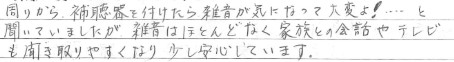 周りから、補聴器を付けたら雑音が気になって大変よ!‥‥と
聞いていましたが 雑音はほとんどなく 家族との会話や テレビ
も聞き取りやすくなり 少し安心しています。